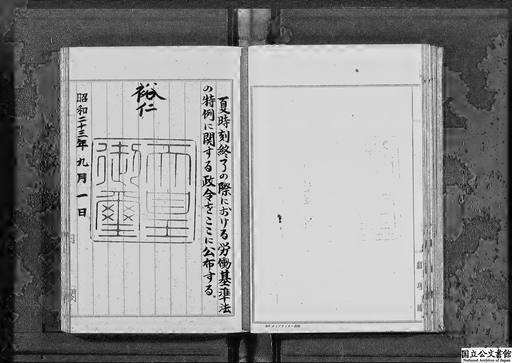 夏時刻終了の際における労働基準法
の特例に関する政令をここに公布する。
裕仁
天皇
御璽
昭和二十三年九月一日
国立公文書館
National Archives of Japan